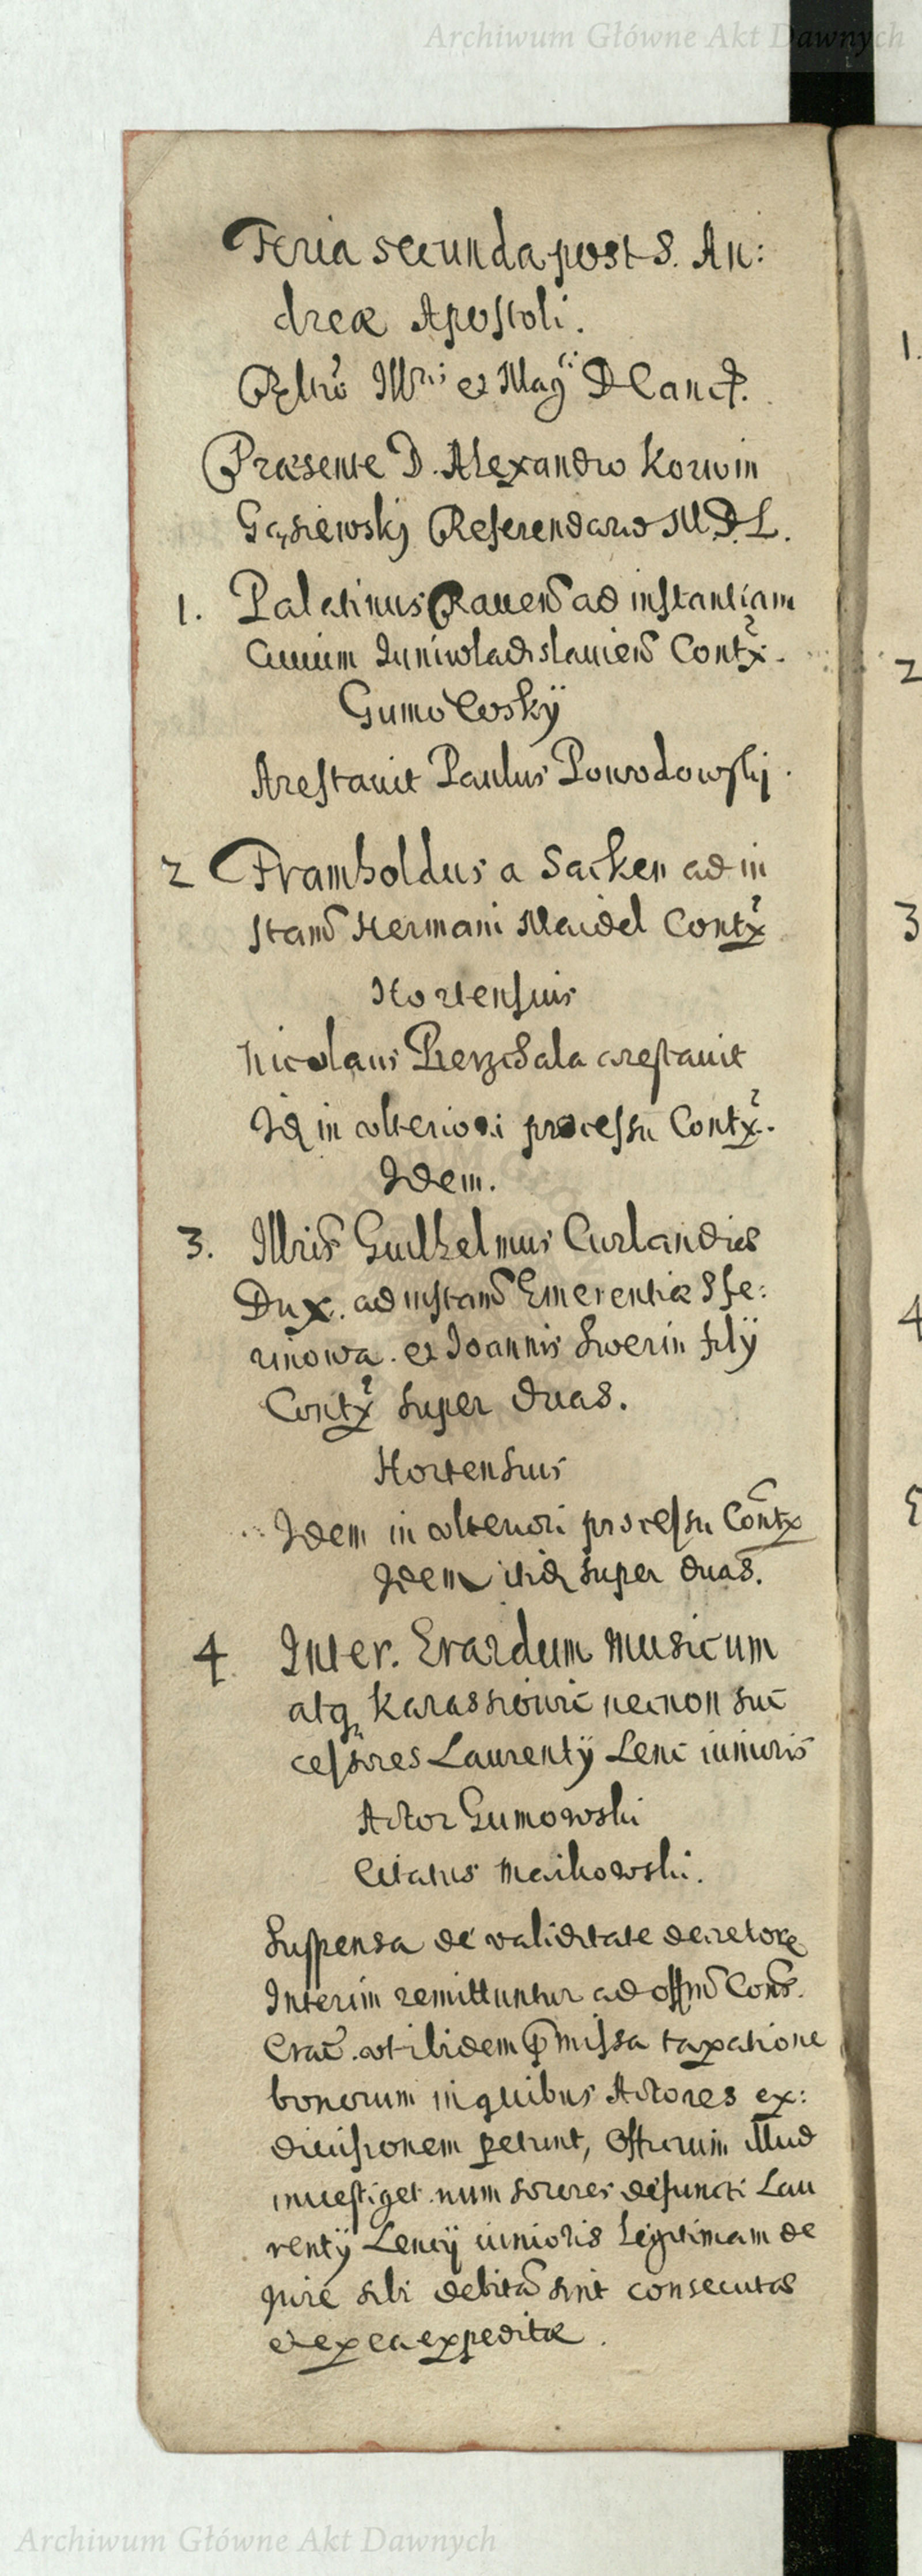 Archiwum Główne Akt Dawnych
Feria secunda post S. An:
dreæ Apostoli.
Illris et Mag D Canc.
Præsente D. Alexandro Korwin
Gąsiewskj Referendario M.D.L.
1. Palatinus Raven ad instantiam
Civium Juniwladislavien Contx.
Gumo Cosky
Arestavit Paulus Powodowskj.
2 Framholdus a Sacken ad in
stan Hermani Maidel Contx
Hortensius
Nicolaus arestavit
Id in ulteriori processu Contx.
Idem.
3. Illris Guilhelmus Curlandiæ
Dux. ad instan Emerentiæ Sfe:
rinowa. et Joannis Swerin filÿ
Contx super duas.
Hortensius
Idem in ulteriori processu Contx
Idem itid super duas.
4 Inter. Erardum musicum
atq Karassiowic necnon suc
cessores Laurentÿ Lenc iunioris
Actor Gumowski
Citatus Maikowski.
Suspensa de validitate decretor
Interim remittuntur ad offm Cons.
Crac. ut ibidem præmissa taxatione
bonorum in quibus Actores ex:
divisionem petunt, Officium illud
investiget num sorores defuncti Lau
rentÿ Lencÿ iunioris legitimam de
jure sibi debita sint consecutæ
et ex ea expeditæ.
1.
2
3
4
Archiwum Główne Akt Dawnych